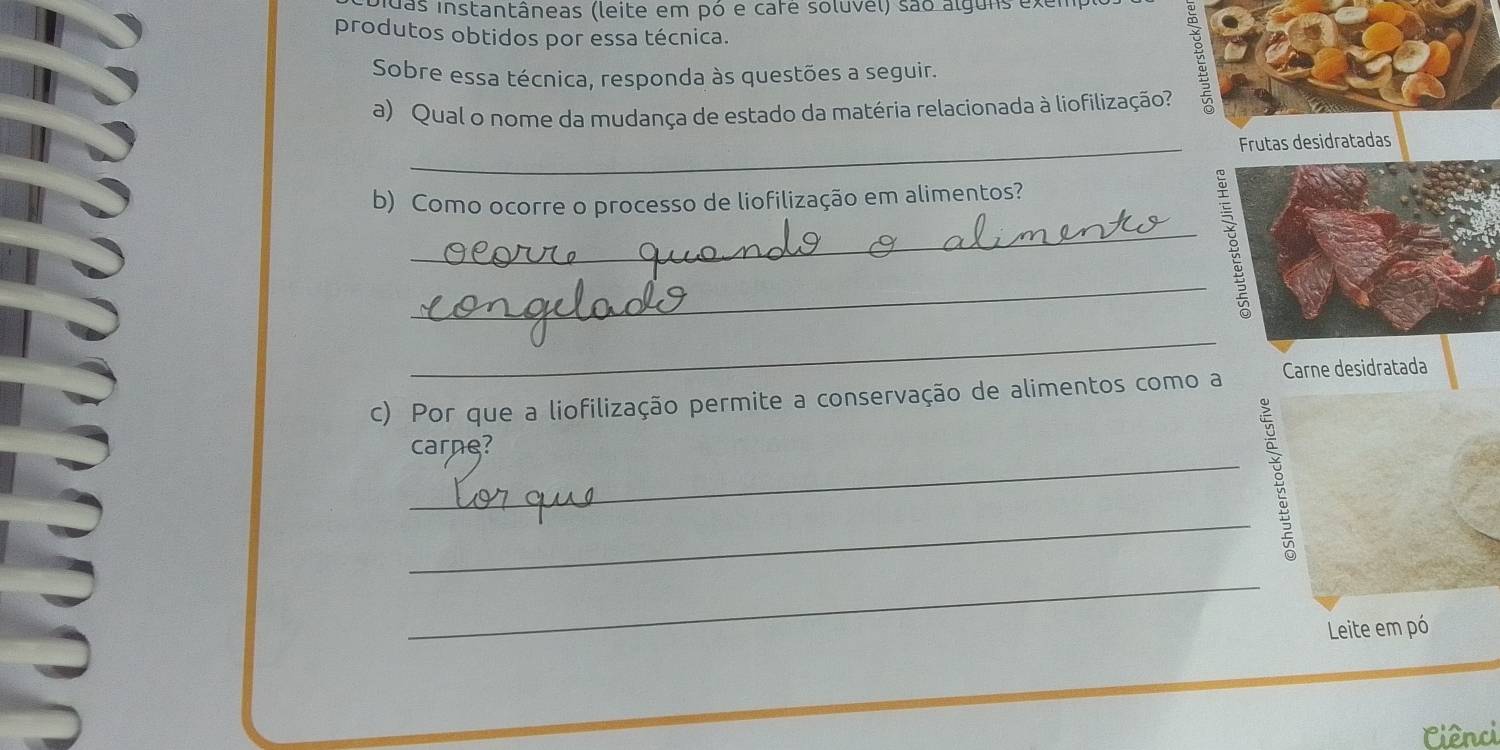 instantâneas (leite em pó e café solúvel) são alguns
produtos obtidos por essa técnica.
Sobre essa técnica, responda às questões a seguir.
a) Qual o nome da mudança de estado da matéria relacionada à liofilização?
b) Como ocorre o processo de liofilização em alimentos?
ocorre quando o alimento
congelado
c) Por que a liofilização permite a conservação de alimentos como a
carne?
Por que
©Shutterstock/Brer
Frutas desidratadas
©Shutterstock/Jiri Hera
Carne desidratada
©Shutterstock/Picsfive
Leite em pó
Ciênci